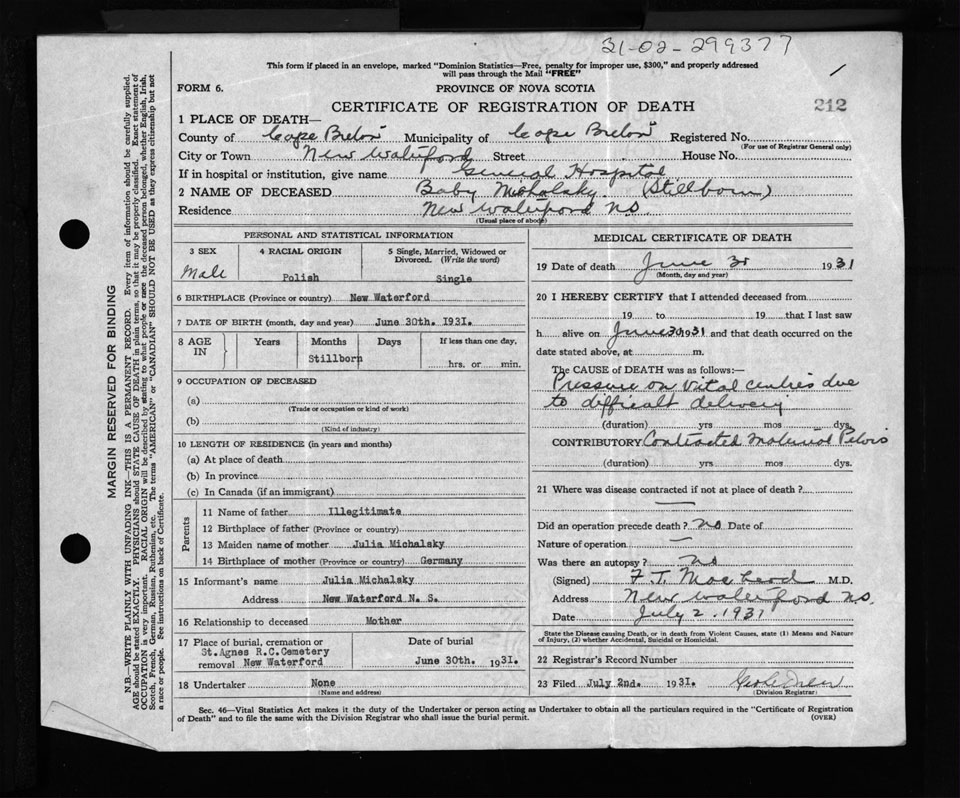 31-02-299377
This form if placed in an envelope, marked "Dominion Statistics—Free, penalty for improper use, $300," and properly addressed
will pass through the Mail "FREE"
FORM 6.
PROVINCE OF NOVA SCOTIA
CERTIFICATE OF REGISTRATION OF DEATH
212
1 PLACE OF DEATH—
County of Cape Breton Municipality of Cape Breton Registered No.
(For use of Registrar General only)
City or Town New Waterford Street House No.
If in hospital or institution, give name General Hospital
2 NAME OF DECEASED Baby Michalsky (Stillborn)
Residence New Waterford N.S.
(Usual place of abode)
PERSONAL AND STATISTICAL INFORMATION
3 SEX
Male
4 RACIAL ORIGIN
Polish
5 Single, Married, Widowed or
Divorced. (Write the word)
Single
6 BIRTHPLACE (Province or country) New Waterford
7 DATE OF BIRTH (month, day and year) June 30th. 1931.
8 AGE
IN
Years
Months
Days
If less than one day,
Stillborn
hrs. or min.
9 OCCUPATION OF DECEASED
(a)
(Trade or occupation or kind of work)
(b)
(Kind of industry)
10 LENGTH OF RESIDENCE (in years and months)
(a) At place of death
(b) In province
(c) In Canada (if an immigrant)
Parents
11 Name of father Illegitimate
12 Birthplace of father (Province or country)
13 Maiden name of mother Julia Michalsky
14 Birthplace of mother (Province or country) Germany
15 Informant's name Julia Michalsky
Address New Waterford N. S.
16 Relationship to deceased Mother
17 Place of burial, cremation or
St.Agnes R.C.Cemetery
removal New Waterford
Date of burial
June 30th. 1931.
18 Undertaker None
(Name and address)
MEDICAL CERTIFICATE OF DEATH
19 Date of death June 30 1931
(Month, day and year)
20 I HEREBY CERTIFY that I attended deceased from
19 to 19 that I last saw
h alive on June 30 1931 and that death occurred on the
date stated above, at m.
The CAUSE of DEATH was as follows:
Pressure on vital centres due
to difficult delivery
(duration) yrs mos dys.
CONTRIBUTORY Contracted Maternal Pelvis
(duration) yrs mos dys.
21 Where was disease contracted if not at place of death?
—
Did an operation precede death? No Date of
Nature of operation —
Was there an autopsy? No
(Signed) F. T. MacLeod M.D.
Address New Waterford N.S.
Date July 2. 1931
State the Disease causing Death, or in death from Violent Causes, state (1) Means and Nature
of Injury, (2) whether Accidental, Suicidal or Homicidal.
22 Registrar's Record Number
23 Filed July 2nd. 1931.
(Division Registrar)
Sec. 46—Vital Statistics Act makes it the duty of the Undertaker or person acting as Undertaker to obtain all the particulars required in the "Certificate of Registration
of Death" and to file the same with the Division Registrar who shall issue the burial permit.
(OVER)
MARGIN RESERVED FOR BINDING
N.B.—WRITE PLAINLY WITH UNFADING INK—THIS IS A PERMANENT RECORD. Every item of information should be carefully supplied.
AGE should be stated EXACTLY. PHYSICIANS should STATE CAUSE OF DEATH in plain terms, so that it may be properly classified. Exact statement of
OCCUPATION is very important. RACIAL ORIGIN will be described by stating to what people or race the deceased person belonged, whether English, Irish,
Scotch, French, German, Russian, Ruthenian, etc. The terms "AMERICAN" or "CANADIAN" SHOULD NOT BE USED as they express citizenship but not
a race or people. See instructions on back of Certificate.